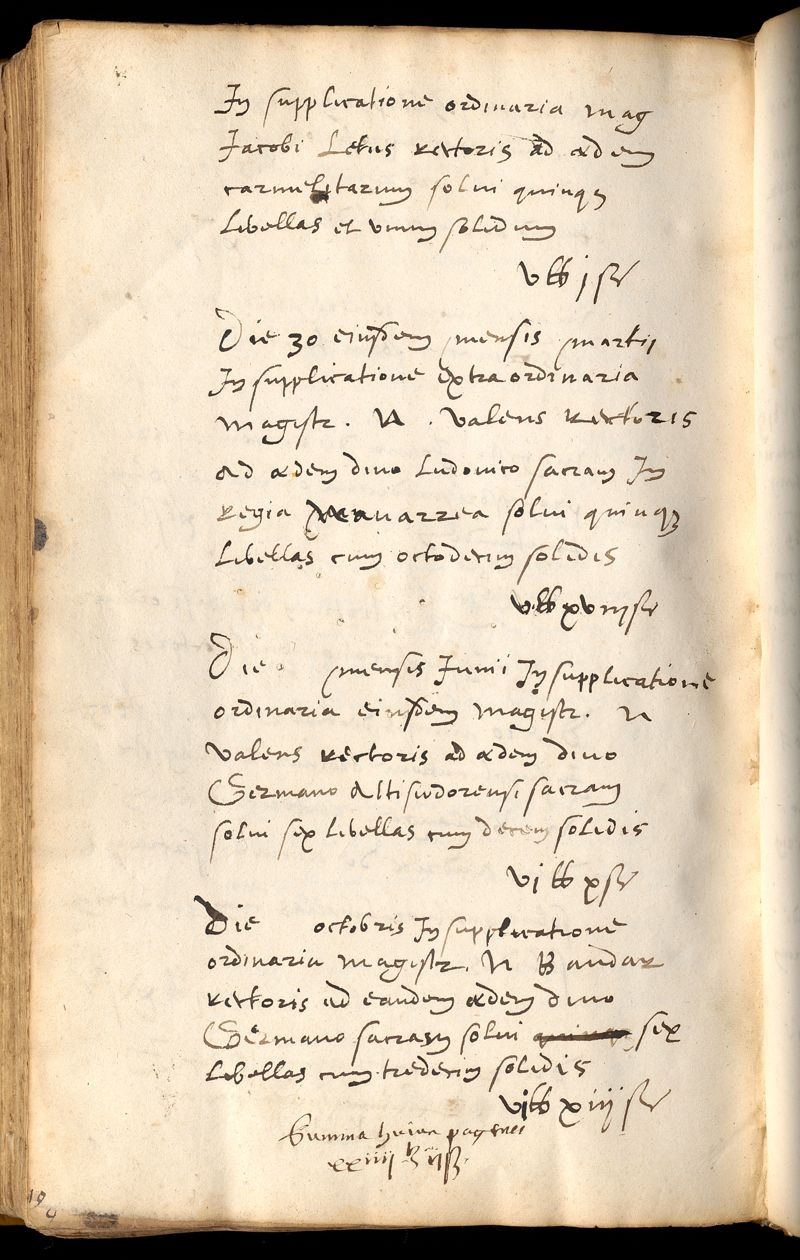 In supplicatione ordinaria mag
Jacobi Letus rectoris ad ædem
carmelitarum solui quinqz
libellas et vnum solidum
v lb j s
Die 30 eiusdem mensis martij
In supplicatione extraordinaria
magistr. N. Valens rectoris
ad ædem diuo Ludouico sacram In
regia nauarrea solui quinqz
libellas cum octodecim solidis
v lb xviij s
Die mensis Junii In supplicatione
ordinaria eiusdem magistr. N
valens rectoris ad ædem diuo
Germano Altisiodorensi sacram
solui sex libellas cum decem solidis
vj lb x s
Die octobris In supplicatione
ordinaria magistr. N Bandar
rectoris ad eandem ædem diuo
Germano sacram solui quinqz sex
libellas cum tredecim solidis
vj lb xiij s
Summa huius paginei
xxiiij lb ij s